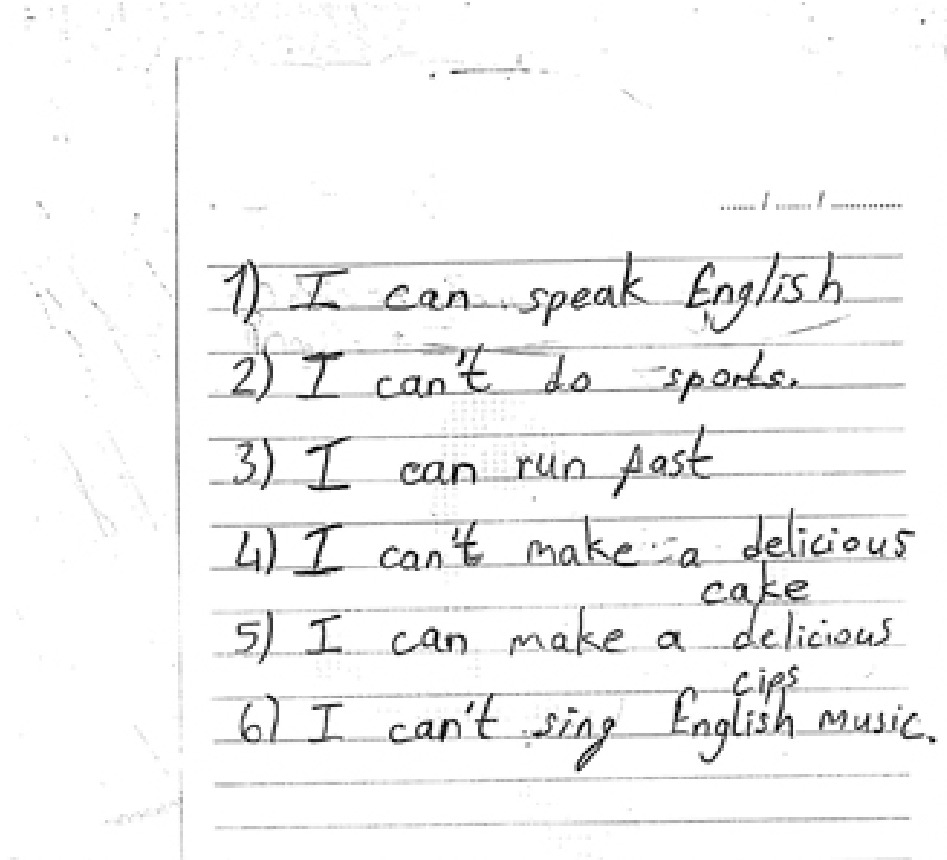 ...... / ...... / ............
1) I can speak English
2) I can't do sports.
3) I can run fast
4) I can't make a delicious
cake
5) I can make a delicious
cips
6) I can't sing English music.